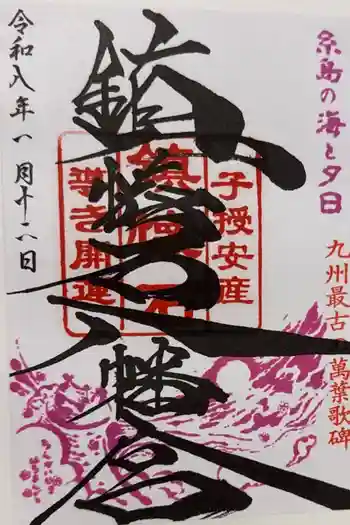 糸島の海と夕日
九州最古の萬葉歌碑
子授安産
鎮懐石
導き開運
鎮懐石八幡宮
令和八年一月十二日